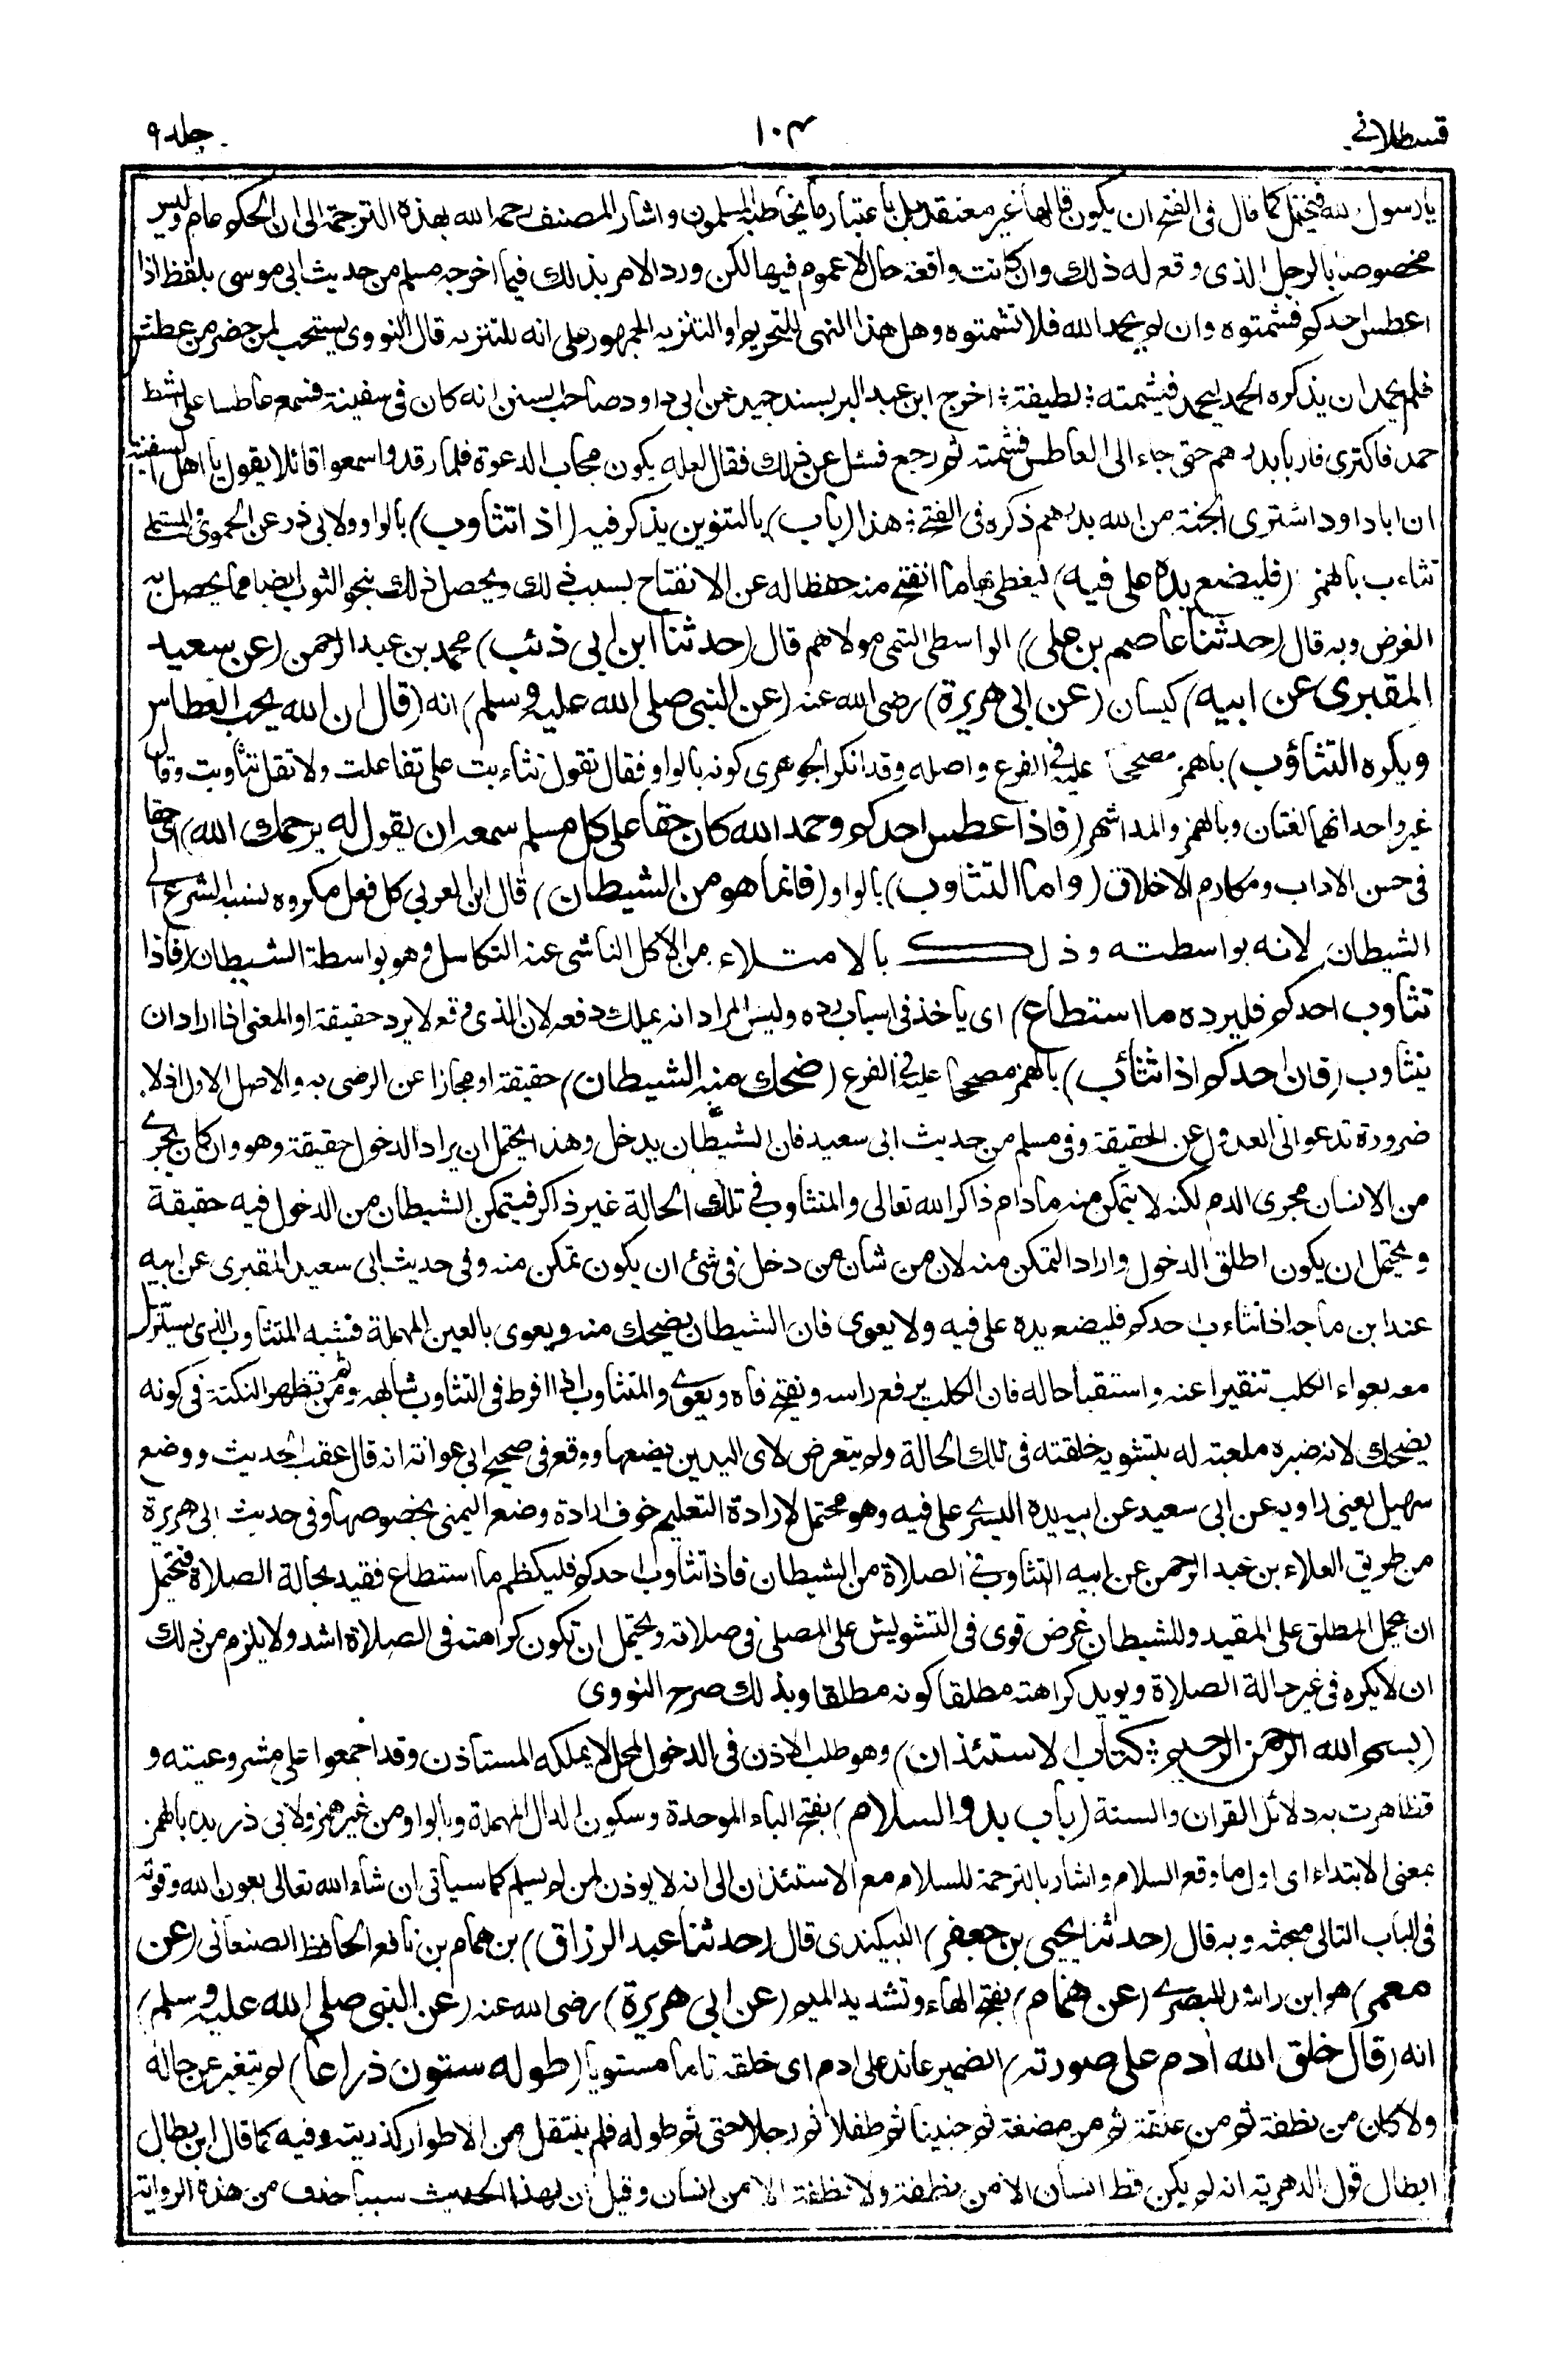 قسطلاني
١٠٣
جلد ٩
يا رسول الله فيحتمل كما قال فى الفتح ان يكون قالها غير معتقد بل باعتبار ما يخاطبه المسلمون واشار المصنف رحمه الله بهذه الترجمة الى ان الحكم عام وليس
مخصوصا بالرجل الذى وقع له ذلك وان كانت واقعة حال لا عموم فيها لكن ورد الامر بذلك فيما اخرجه مسلم من حديث ابى موسى بلفظ اذا
عطس احدكم فشمتوه وان لم يحمد الله فلا تشمتوه وهل هذا النهى للتحريم او التنزيه الجمهور على انه للتنزيه قال النووى يستحب لمن حضر من عطس
فلم يحمد ان يذكره الحمد ليحمد فيشمته لطيفة اخرج ابن عبد البر بسند جيد عن ابى داود صاحب السنن انه كان فى سفينة فسمع عاطسا على الشط
حمد فاكترى قاربا بدرهم حتى جاء الى العاطس فشمته ثم رجع فسئل عن ذلك فقال لعله يكون مجاب الدعوة فلما رقدوا سمعوا قائلا يقول يا اهل السفينة
ان ابا داود اشترى الجنة من الله بدرهم ذكره فى الفتح هذا (باب) بالتنوين يذكر فيه (اذا تثاوب) بالواو ولابى ذر عن الحموى والمستملى
تثاءب بالهمز (فليضع يده على فيه) ليغطى بها ما انفتح منه حفظا له عن الانفتاح بسبب ذلك ويحصل ذلك بنحو الثوب ايضا مما يحصل به
الغرض وبه قال (حدثنا عاصم بن على) الواسطى التيمى مولاهم قال (حدثنا ابن ابى ذئب) محمد بن عبد الرحمن (عن سعيد
المقبرى عن ابيه) كيسان (عن ابى هريرة) رضى الله عنه (عن النبى صلى الله عليه وسلم) انه (قال ان الله يحب العطاس
ويكره التثاؤب) بالهمز مصححا عليه فى الفرع واصله وقد انكر الجوهرى كونه بالواو فقال تقول تثاءبت على تفاعلت ولا تقل تثاوبت وقال
غير واحد انهما لغتان وبالهمز والمد اشهر (فاذا عطس احدكم وحمد الله كان حقا على كل مسلم سمعه ان يقول له يرحمك الله) اى حقا
فى حسن الاداب ومكارم الاخلاق (واما التثاوب) بالواو (فانما هو من الشيطان) قال ابن العربى كل فعل مكروه نسبه الشرع الى
الشيطان لانه بواسطته وذلك بالامتلاء من الاكل الناشى عنه التكاسل وهو بواسطة الشيطان (فاذا
تثاوب احدكم فليرده ما استطاع) اى ياخذ فى اسباب رده وليس المراد انه يملك دفعه لان الذى وقع لا يرد حقيقة او المعنى اذا اراد ان
يتثاوب (فان احدكم اذا تثائب) بالهمز مصححا عليه فى الفرع (ضحك منه الشيطان) حقيقة او مجازا عن الرضى به والاصل الاول اذ لا
ضرورة تدعو الى العدول عن الحقيقة وفى مسلم من حديث ابى سعيد فان الشيطان يدخل وهذا يحتمل ان يراد الدخول حقيقة وهو وان كان يجرى
من الانسان مجرى الدم لكنه لا يتمكن منه مادام ذاكر الله تعالى والمتثاوب فى تلك الحالة غير ذاكر فيتمكن الشيطان من الدخول فيه حقيقة
ويحتمل ان يكون اطلق الدخول واراد التمكن منه لان من شان من دخل فى شئ ان يكون تمكن منه وفى حديث ابى سعيد المقبرى عن ابيه
عند ابن ماجه اذا تثاءب احدكم فليضع يده على فيه ولا يعوى فان الشيطان يضحك منه ويعوى بالعين المهملة فشبه المتثاوب الذى يسترسل
معه بعواء الكلب تنفيرا عنه واستقباحا له فان الكلب يرفع راسه ويفتح فاه ويعوى والمتثاوب اذا افرط فى التثاوب شابهه ومن ثم تظهر النكتة فى كونه
يضحك لانه صيره ملعبة له بتشويه خلقته فى تلك الحالة ولم يتعرض لاى اليدين يضعها ووقع فى صحيح ابى عوانة انه قال عقب الحديث ووضع
سهيل يعنى راويه عن ابى سعيد عن ابيه يده اليسرى على فيه وهو محتمل لارادة التعليم خوف ارادة وضع اليمنى بخصوصها وفى حديث ابى هريرة
من طريق العلاء بن عبد الرحمن عن ابيه التثاوب فى الصلاة من الشيطان فاذا تثاوب احدكم فليكظم ما استطاع فقيد بحالة الصلاة فيحتمل
ان يحمل المطلق على المقيد وللشيطان غرض قوى فى التشويش على المصلى فى صلاته ويحتمل ان تكون كراهته فى الصلاة اشد ولا يلزم من ذلك
ان لا يكره فى غير حالة الصلاة ويويد كراهته مطلقا كونه مطلقا وبذلك صرح النووى
(بسم الله الرحمن الرحيم كتاب الاستئذان) وهو طلب الاذن فى الدخول لمحل لا يملكه المستاذن وقد اجمعوا على مشروعيته و
تظاهرت به دلائل القران والسنة (باب بدو السلام) بفتح الباء الموحدة وسكون الدال المهملة وبالواو من غير همز ولابى ذر بدء بالهمز
بمعنى الابتداء اى اول ما وقع السلام واشار بالترجمة للسلام مع الاستئذان الى انه لا يوذن لمن لم يسلم كما سياتى ان شاء الله تعالى بعون الله وقوته
فى الباب التالى مبحثه وبه قال (حدثنا يحيى بن جعفر) البيكندى قال (حدثنا عبد الرزاق) بن همام بن نافع الحافظ الصنعانى (عن
معمر) هو ابن راشد البصرى (عن همام) بفتح الهاء وتشديد الميم (عن ابى هريرة) رضى الله عنه (عن النبى صلى الله عليه وسلم)
انه (قال خلق الله ادم على صورته) الضمير عائد على ادم اى خلقه تاما مستويا (طوله ستون ذراعا) لم يتغير عن حاله
ولا كان من نطفة ثم من علقة ثم من مضغة ثم جنينا ثم طفلا ثم رجلا حتى تم طوله فلم ينتقل من الاطوار كذريته وفيه كما قال ابن بطال
ابطال قول الدهرية انه لم يكن قط انسان الا من نطفة ولا نطفة الا من انسان وقيل ان لهذا الحديث سببا حذف من هذه الرواية